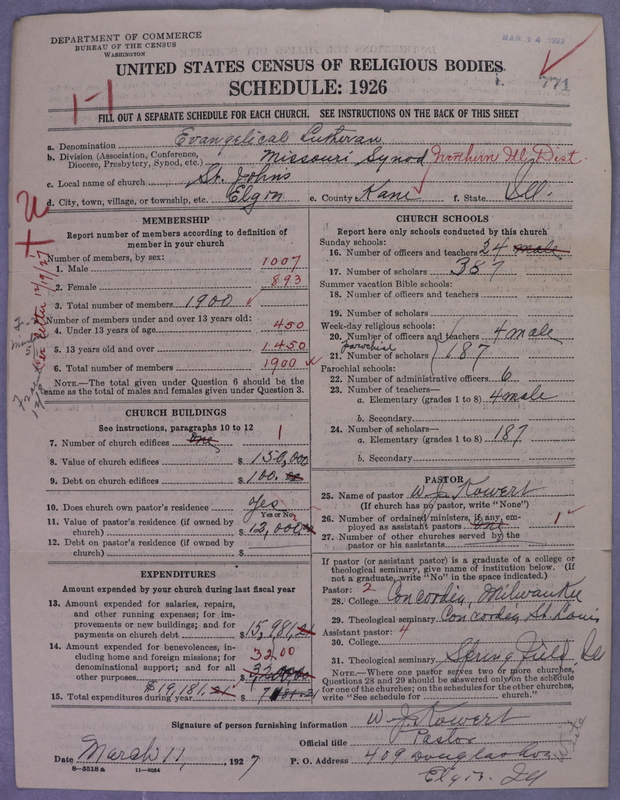 DEPARTMENT OF COMMERCE
BUREAU OF THE CENSUS
WASHINGTON
MAR 14 1927
UNITED STATES CENSUS OF RELIGIOUS BODIES
SCHEDULE: 1926
771
1-1
FILL OUT A SEPARATE SCHEDULE FOR EACH CHURCH. SEE INSTRUCTIONS ON THE BACK OF THIS SHEET
a. Denomination Evangelical Lutheran
b. Division (Association, Conference, Diocese, Presbytery, Synod, etc.) Missouri Synod Northern Ill. Dist.
c. Local name of church St. Johns
d. City, town, village, or township, etc. Elgin e. County Kane f. State Ill.
MEMBERSHIP
Report number of members according to definition of
member in your church
Number of members, by sex:
1. Male 1007
2. Female 893
3. Total number of members 1900
Number of members under and over 13 years old:
4. Under 13 years of age 450
5. 13 years old and over 1450
6. Total number of members 1900
NOTE.—The total given under Question 6 should be the
same as the total of males and females given under Question 3.
CHURCH BUILDINGS
See instructions, paragraphs 10 to 12
7. Number of church edifices one 1
8. Value of church edifices $ 150,000
9. Debt on church edifices $ 100.
10. Does church own pastor's residence? yes
Yes or No
11. Value of pastor's residence (if owned by
church) $ 12,000
12. Debt on pastor's residence (if owned by
church) $
EXPENDITURES
Amount expended by your church during last fiscal year
13. Amount expended for salaries, repairs,
and other running expenses; for im-
provements or new buildings; and for
payments on church debt $ 15,981.21
14. Amount expended for benevolences, in-
cluding home and foreign missions; for
denominational support; and for all
other purposes $ 3200
$19,181.21
15. Total expenditures during year $
CHURCH SCHOOLS
Report here only schools conducted by this church
Sunday schools:
16. Number of officers and teachers 24 male
17. Number of scholars 357
Summer vacation Bible schools:
18. Number of officers and teachers
19. Number of scholars
Week-day religious schools:
20. Number of officers and teachers 4 male
parochial
21. Number of scholars 187
Parochial schools:
22. Number of administrative officers 6
23. Number of teachers—
a. Elementary (grades 1 to 8) 4 male
b. Secondary
24. Number of scholars—
a. Elementary (grades 1 to 8) 187
b. Secondary
PASTOR
25. Name of pastor W J Kowert
(If church has no pastor, write "None")
26. Number of ordained ministers, if any, em-
ployed as assistant pastors one 1
27. Number of other churches served by the
pastor or his assistants
If pastor (or assistant pastor) is a graduate of a college or
theological seminary, give name of institution below. (If
not a graduate, write "No" in the space indicated.)
Pastor: 2
28. College Concordia, Milwaukee
29. Theological seminary Concordia St. Louis
Assistant pastor: 4
30. College
31. Theological seminary Springfield, Ills
NOTE.—Where one pastor serves two or more churches,
Questions 28 and 29 should be answered only on the schedule
for one of the churches; on the schedules for the other churches,
write "See schedule for church."
Signature of person furnishing information W J Kowert
Official title Pastor
Date March 11, 1927 P. O. Address 409 Douglas Ave
Elgin. Ill
8—5518 a 11—9064